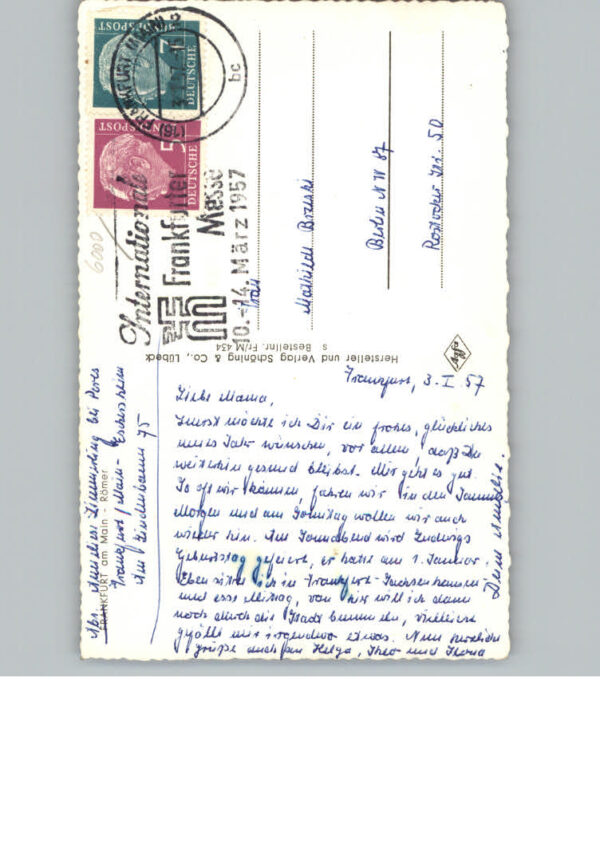 Frankfurt, 3. I. 57
Liebe Mama,
Zuerst möchte ich Dir ein frohes, glückliches
neues Jahr wünschen, vor allem, daß Du
weiterhin gesund bleibst. Mir geht es gut.
So oft wir können, fahren wir in den Taunus.
Morgen und am Sonntag wollen wir auch
wieder hin. Am Sonnabend wird Ludwigs
Geburtstag gefeiert, er hatte am 1. Januar.
Eben sitze ich in Frankfurt-Sachsenhausen
und esse Mittag, von hier will ich dann
noch durch die Stadt bummeln, vielleicht
gefällt mir irgendwo etwas. Nun herzliche
Grüße auch an Helga, Theo und
Deine Annelie
Abs. Anneliese bei
Frankfurt/Main - Eschersheim
Am Lindenbaum 75
FRANKFURT am Main - Römer
Hersteller und Verlag Schöning & Co., Lübeck
s Bestellnr. Fr/M 434
Agfa
DEUTSCHE BUNDESPOST
7
DEUTSCHE BUNDESPOST
5
FRANKFURT (MAIN)
(16)
bc
Internationale
Frankfurter
Messe
10.-14. März 1957
6000
Frau
Mathilde
Berlin NW 87
Rostocker Str. 50